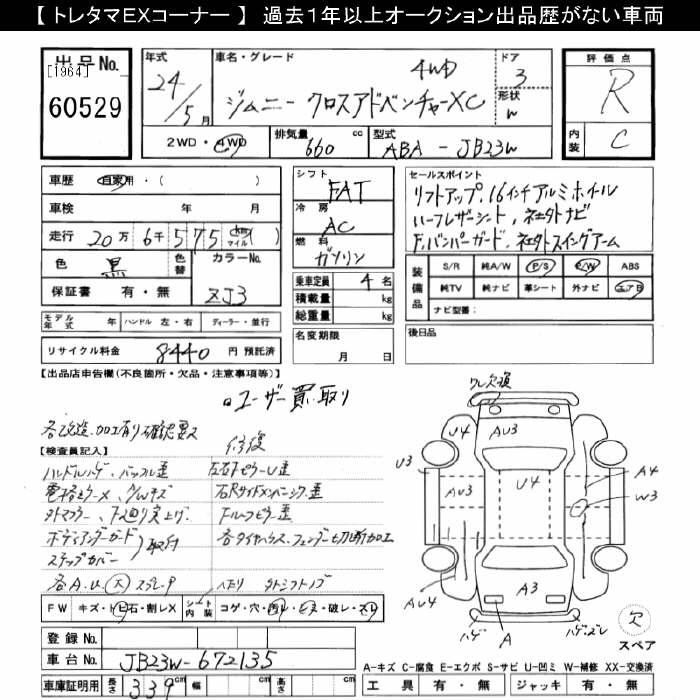 【 トレタマEXコーナー 】 過去１年以上オークション出品歴がない車両
出品No.
[1964]
60529
年式
24/5月
車名・グレード
4WD
ジムニー クロスアドベンチャーXC
ドア
3
形状
W
評価点
R
内装
C
2WD・4WD
排気量
660 cc
型式
ABA - JB23W
車歴 自家用・( )
車検 年 月
走行 20万 6千 575 km マイル ( )
色 黒
色替
カラーNo.
ZJ3
保証書 有・無
モデル年式 年 ハンドル 左・右 ディーラー・並行
リサイクル料金 8440 円 預託済
シフト
FAT
冷房
AC
燃料
ガソリン
乗車定員 4 名
積載量 kg
総重量 kg
名変期限
月 日
セールスポイント
リフトアップ、16インチアルミホイール
ハーフレザーシート、社外ナビ
F,バンパーガード、社外スイングアーム
装備品
S/R 純A/W P/S P/W ABS
純TV 純ナビ 革シート 外ナビ エアB
ナビ型番:
後日品
【出品店申告欄(不良箇所・欠品・注意事項等)】
ユーザー買取り
各改造、加工有り確認要ス
【検査員記入】
修復
左右Fピラーし歪
Fルーフピラー歪
各タイヤハウス、フェンダー切断加工
ボディアンダーガード
ステップカバー
取付
外マフラー、下廻り突上げ
各A.U.
外シフトノブ
ワレ欠損
AU3
U4
U3
AU3
U4
A4
W3
A3
AU4
A
欠
スペア
FW キズ・トビ石・割レX
シート内装 コゲ・穴・汚レ・キズ・破レ・スレ
登録No.
車台No. JB23W-672135
車庫証明用 長さ 339 cm 幅 cm 高さ cm
A-キズ C-腐食 E-エクボ S-サビ U-凹ミ W-補修 XX-交換済
工具 有・無 ジャッキ 有・無